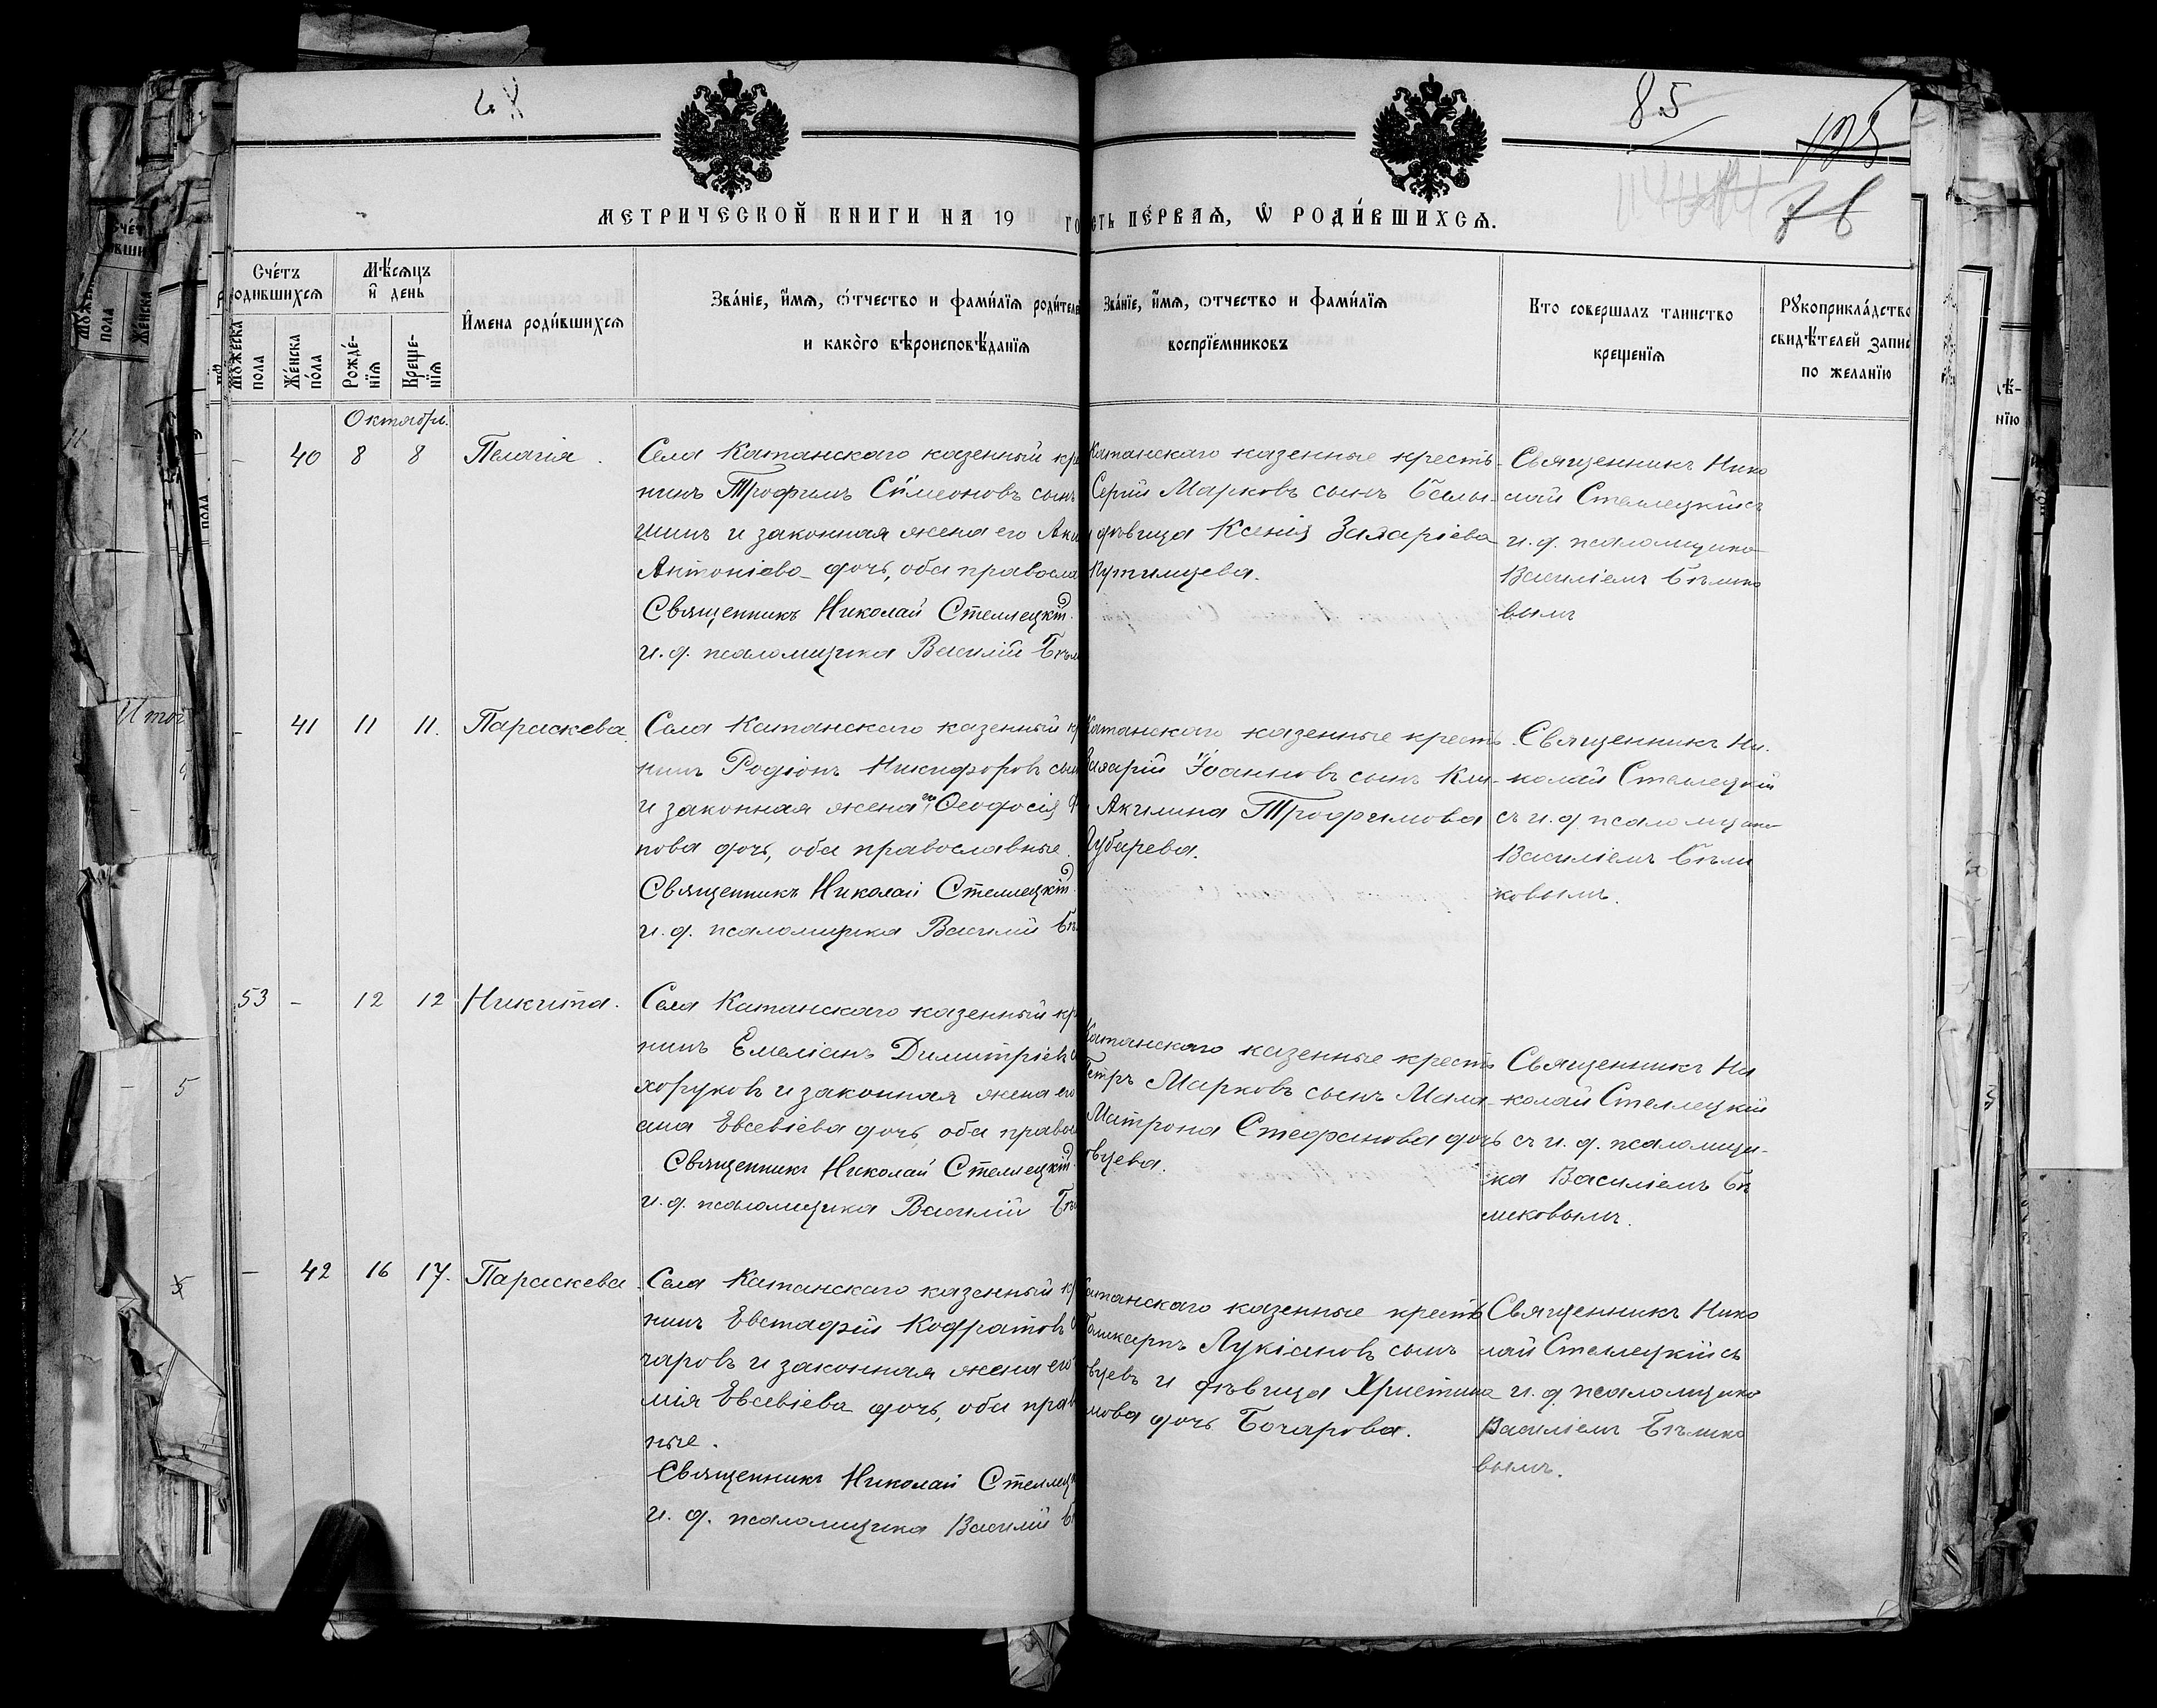 85
МЕТРИЧЕСКОЙ КНИГИ НА 19 ГО
СТЬ ПЕ́РВАѦ, Ѡ҆ РОДИ́ВШИХСѦ.
Сче́тъ
родившихсѧ
Мѣ́сѧцъ
и҆ день
Мꙋ́жеска
пола
Же́нска
по́ла
Рожде́-
нїѧ
Креще-
нїѧ
И҆мена роди́вшихсѧ
Зва́нїе, и҆́мѧ, ѻ҆́тчество и фами́лїѧ роди́теле
и како́го вѣроисповѣ́данїѧ
Зва́нїе, и҆́мѧ, ѻтчество и фами́лїѧ
воспрїе́мниковъ
Кто совершалъ таинство
крещенїѧ
Рꙋкоприкла́дство
свидѣ́телей запис
по желанїю
Октябрь.
- 40 8 8 Пелагія.
Села Катанскаго казенный кре
нинъ Трофимъ Сѵмеоновъ сынъ
шинъ и законная жена его Аки
Антоніева дочь, оба правосла
Священникъ Николай Стеллецкій.
и. д. псаломщика Василій Бѣл
Катанскаго казенные кресть-
Сергій Марковъ сынъ
дѣвица Ксенія Захаріева
Путимцева.
Священникъ Нико
лай Стеллецкій съ
и. д. псаломщика
Василіемъ Бѣлико
вымъ
- 41 11 11. Параскева.
Села Катанскаго казенный кр
нинъ Родіонъ Никифоровъ сын
и законная жена его Ѳеодосія
пова дочь, оба православные.
Священникъ Николай Стеллецкій
и. д. псаломщика Василій Бѣ
Катанскаго казенные кресть-
Захарій Іоанновъ сынъ Кли-
Акилина Трофимова
Губарева.
Священникъ Ни-
колай Стеллецкій
съ и. д. псаломщика
Василіемъ Бѣли
ковымъ.
53 - 12 12 Никита.
Села Катанскаго казенный кр
нинъ Емеліанъ Димитріевъ
хоруковъ и законная жена его
Евсевіева дочь, оба право
Священникъ Николай Стеллецкій
и. д. псаломщика Василій Бѣ
Катанскаго казенные кресть
Петръ Марковъ сынъ Мала-
Матрона Стефанова дочь
овцева.
Священникъ Ни
колай Стеллецкій
съ и. д. псаломщи-
ка Василіемъ Бѣ
ликовымъ.
- 42 16 17. Параскева.
Села Катанскаго казенный кр
нинъ Евстафій Кодратовъ
чаровъ и законная жена его
мія Евсевіева дочь, оба прав
ные.
Священникъ Николай Стеллец
и. д. псаломщика Василій Б
Катанскаго казенные кресть
Поликарпъ Лукіановъ сынъ
овцевъ и дѣвица Христина
мова дочь Бочарова.
Священникъ Нико
лай Стеллецкій съ
и. д. псаломщика
Василіемъ Бѣлико
вымъ.